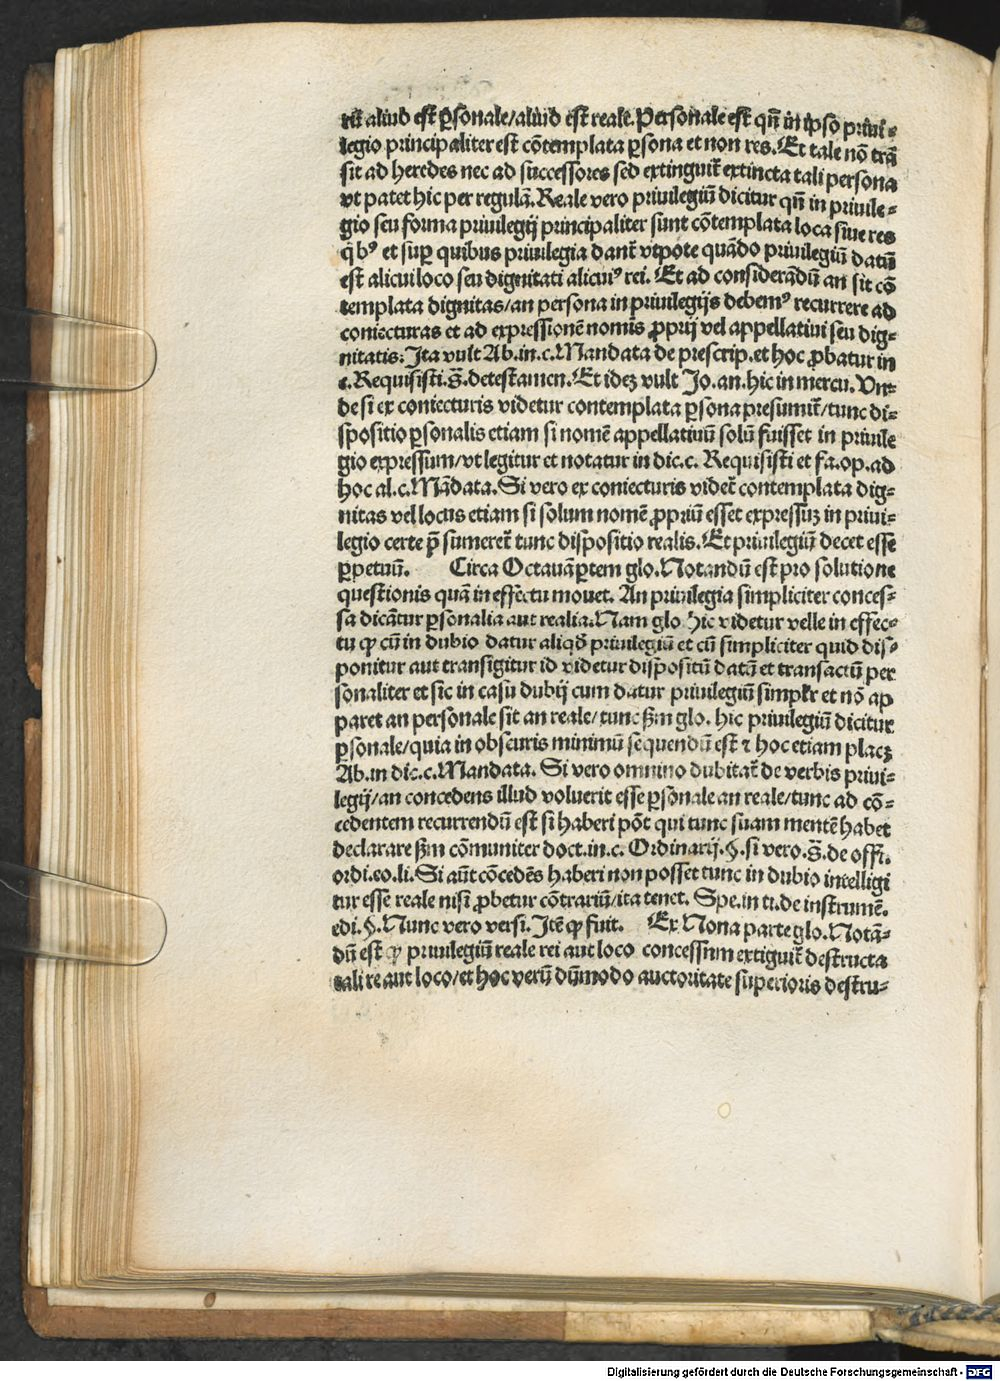 rū aliud eſt ꝑſonale/aliud eſt reale. Perſonale eſt qn̄ in ipſo priui⸗
legio principaliter eſt cōtemplata ꝑſona et non res. Et tale nō trā
ſit ad heredes nec ad ſucceſſores ſed extinguit̄ extincta tali perſona
vt patet hic per regulā. Reale vero priuilegiū dicitur qn̄ in priuile⸗
gio ſeu forma priuilegij principaliter ſunt cōtemplata loca ſiue res
q̄bꝰ et ſuꝑ quibus priuilegia dant̄ vtpote quādo priuilegiū datū
eſt alicui loco ſeu dignitati alicuiꝰ rei. Et ad conſiderādū an ſit cō
templata dignitas/an perſona in priuilegijs debemꝰ recurrere ad
coniecturas et ad expreſſionē nomīs ꝓprij vel appellatiui ſeu dig⸗
nitatis. Ita vult Ab. in. c. Mandata de preſcrip. et hoc ꝓbatur in
c. Requiſiſti. S̄. de teſtamen. Et ideꝫ vult Jo. an. hic in mercu. Vn⸗
de ſi ex coniecturis videtur contemplata ꝑſona preſumit̄/tunc di⸗
ſpoſitio ꝑſonalis etiam ſi nomē appellatiuū ſolū fuiſſet in priuile
gio expreſſum/vt legitur et notatur in dic. c. Requiſiſti et fa. op. ad
hoc al. c. Mādata. Si vero ex coniecturis videt̄ contemplata dig⸗
nitas vel locus etiam ſi ſolum nomē ꝓpriū eſſet expreſſuꝫ in priui⸗
legio certe p̄ſumeret̄ tunc diſpoſitio realis. Et priuilegiū decet eſſe
ꝑpetuū. Circa Octauā ꝑtem glo. Notandū eſt pro ſolutione
queſtionis quā in effectu mouet. An priuilegia ſimpliciter conceſ⸗
ſa dicātur ꝑſonalia aut realia. Nam glo hic videtur velle in effec⸗
tu ꝙ cū in dubio datur aliqd̄ priuilegiū et cū ſimpliciter quid diſ⸗
ponitur aut tranſigitur id videtur diſpoſitū datū et tranſactū per
ſonaliter et ſic in caſu dubij cum datur priuilegiū ſimpłr et nō ap
paret an perſonale ſit an reale/tunc ẜm glo. hic priuilegiū dicitur
ꝑſonale/quia in obſcuris minimū ſequendū eſt ⁊ hoc etiam placꝫ
Ab. in dic. c. Mandata. Si vero omnino dubitat̄ de verbis priui⸗
legij/an concedens illud voluerit eſſe ꝑſonale an reale/tunc ad cō⸗
cedentem recurrendū eſt ſi haberi pōt qui tunc ſuam mentē habet
declarare ẜm cōmuniter doct. in. c. Ordinarij. §. ſi vero. S̄. de offi.
ordi. eo. li. Si aūt cōcedēs haberi non poſſet tunc in dubio intelligi
tur eſſe reale niſi ꝓbetur cōtrariū/ita tenet. Spe. in ti. de inſtrumē.
edi. §. Nunc vero verſi. Itē ꝙ fuit. Ex Nona parte glo. Notā⸗
dū eſt ꝙ priuilegiū reale rei aut loco conceſſum extiguit̄ deſtructa
tali re aut loco/et hoc verū dūmodo auctoritate ſuperioris deſtru⸗
Digitalisierung gefördert durch die Deutsche Forschungsgemeinschaft - DFG